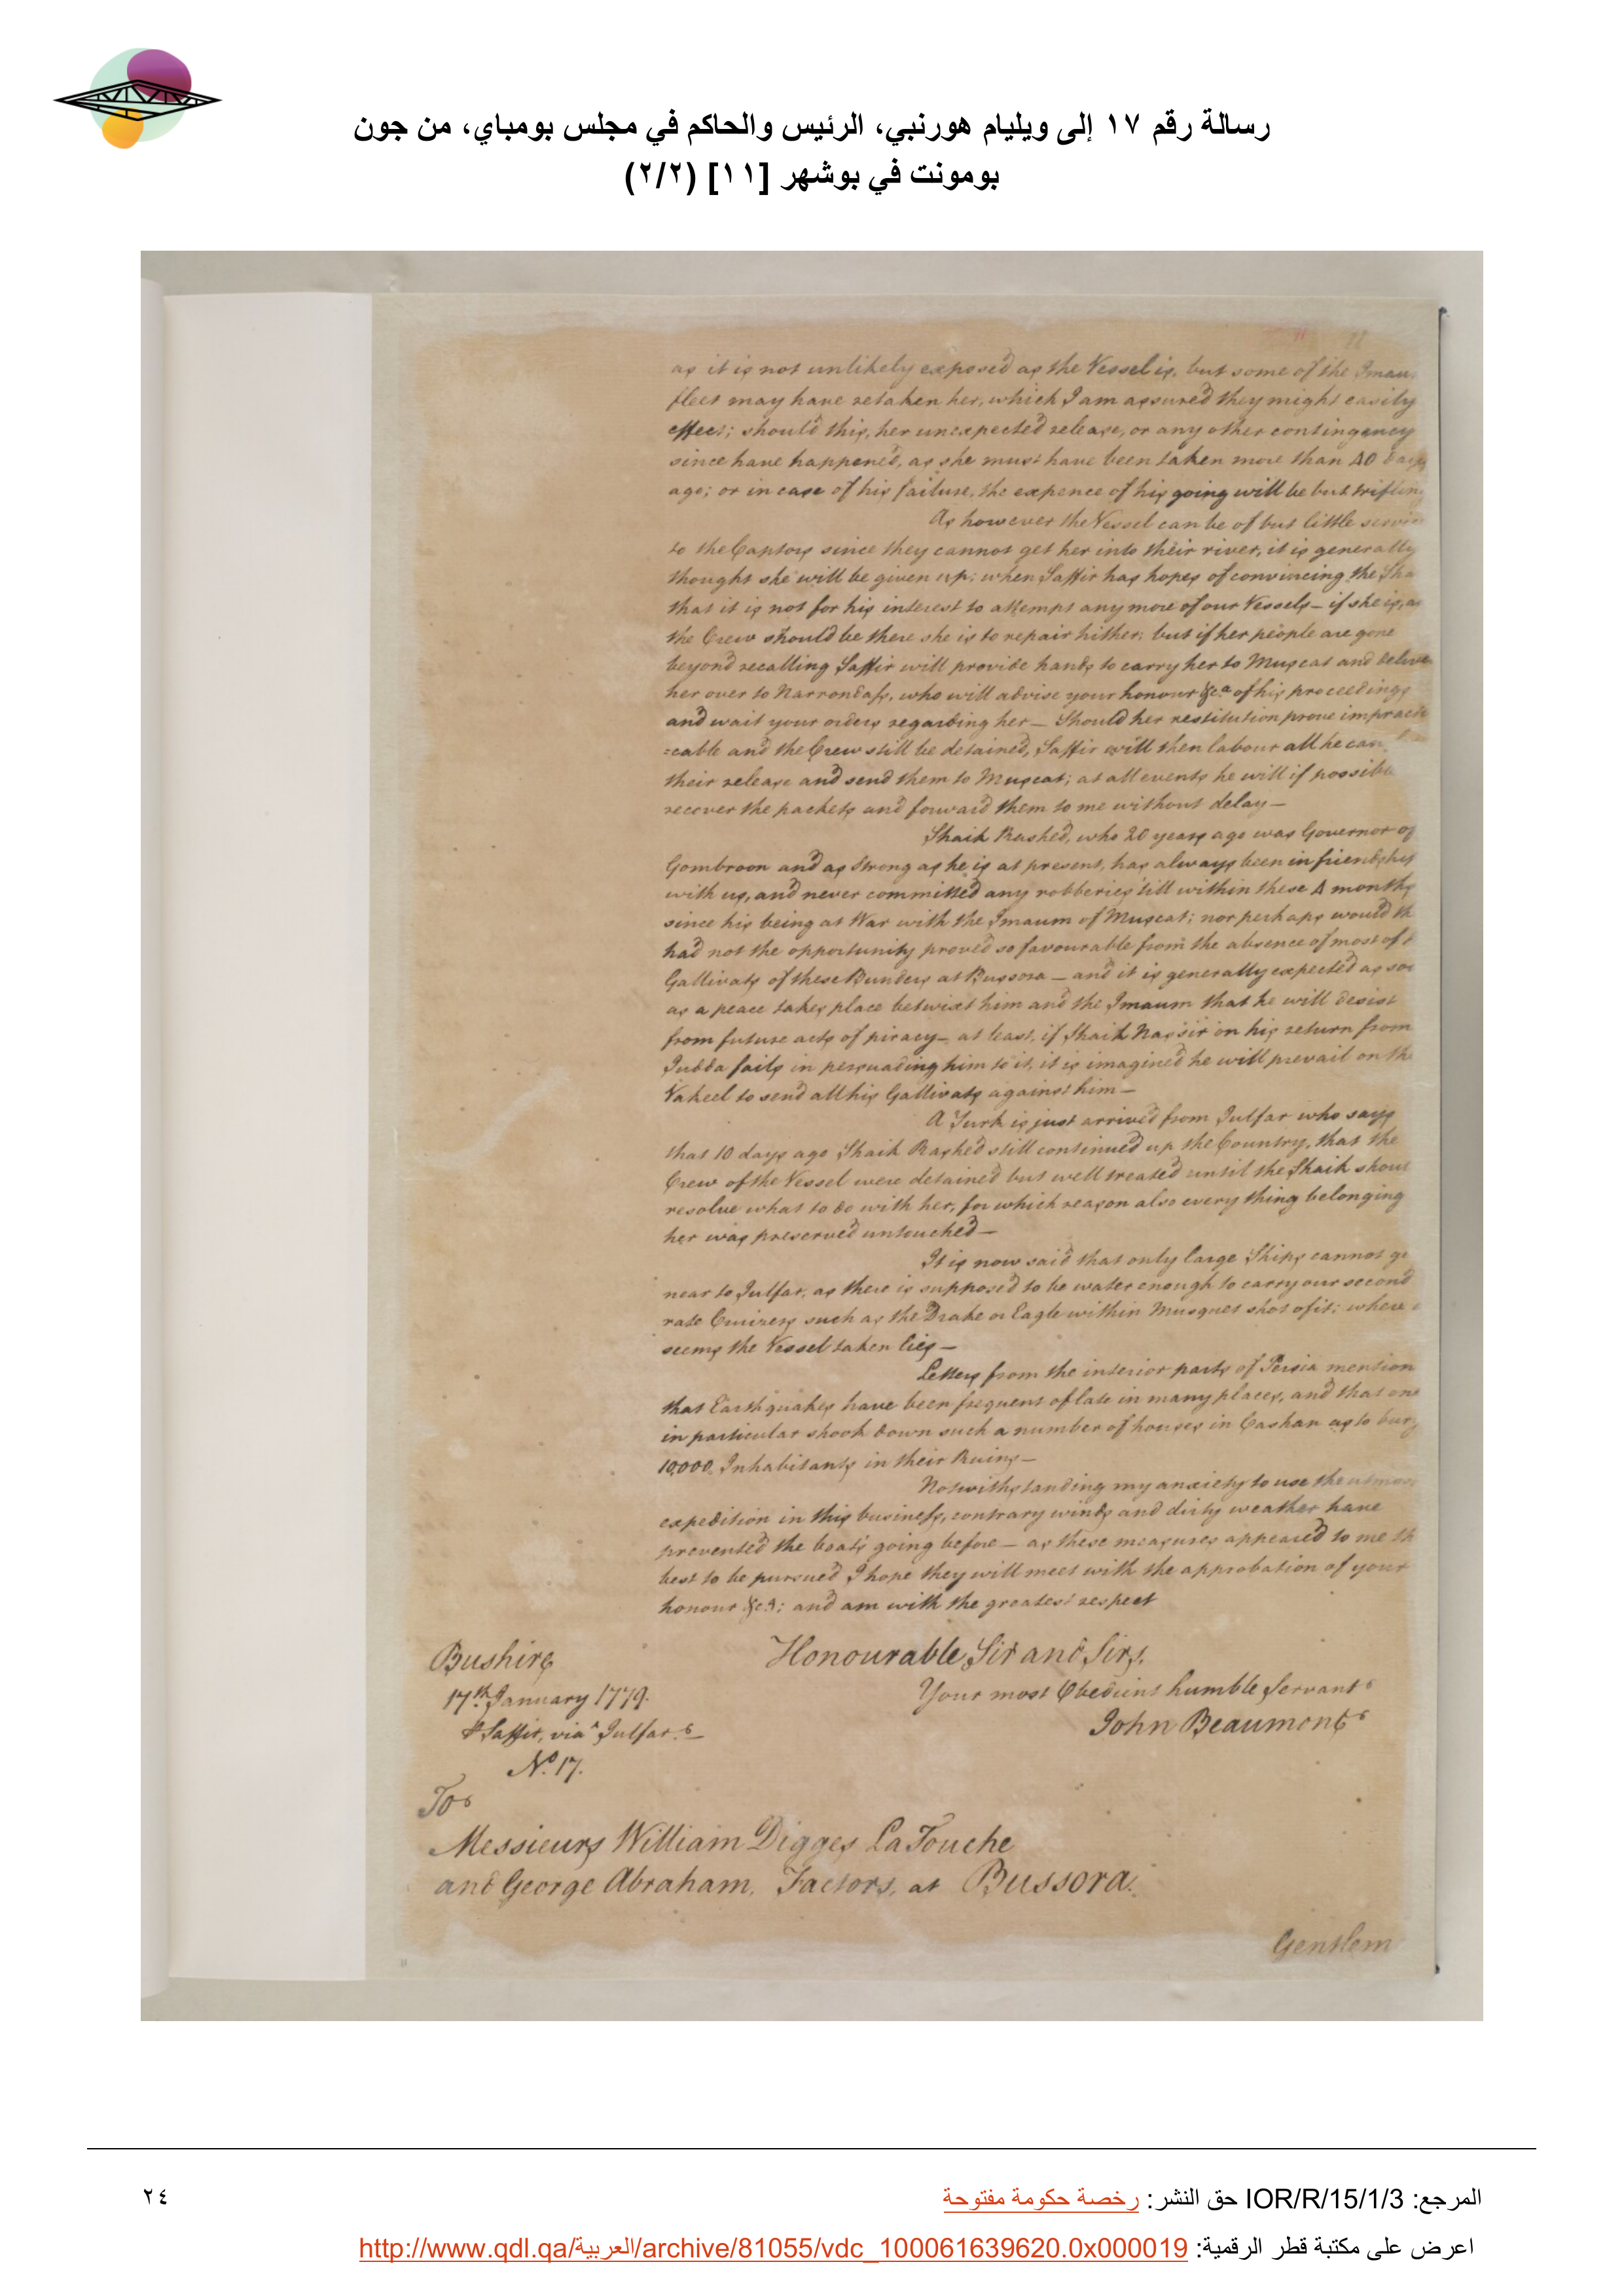 رسالة رقم ١٧ إلى ويليام هورنبي، الرئيس والحاكم في مجلس بومباي، من جون
بومونت في بوشهر [١١] (٢/٢)
as it is not unlikely exposed as the Vessel is, but some of the Imau
fleet may have retaken her, which I am assured they might easily
effect; should this, her unexpected release, or any other contingency
since have happened, as she must have been taken more than 40 days
ago; or in case of his failure, the expence of his going will be but trifling
As however the Vessel can be of but little servic
to the Captors since they cannot get her into their river, it is generally
thought she will be given up; when Saffir has hopes of convincing the Sha
that it is not for his interest to attempt any more of our Vessels – if she is, as
the Crew should be there she is to repair hither; but if her people are gone
beyond recalling Saffir will provide hands to carry her to Muscat and deliver
her over to Narrondass, who will advise your honour &ca of his proceedings
and wait your orders regarding her – Should her restitution prove impracti
=cable and the Crew still be detained, Saffir will then labour all he can
their release and send them to Muscat; at all events he will if possible
recover the packets and forward them to me without delay –
Shaik Rashed, who 20 years ago was Governor of
Gombroon and as strong as he is at present, has always been in friendship
with us, and never committed any robberies till within these 4 months
since his being at War with the Imaum of Muscat; nor perhaps would th
had not the opportunity proved so favourable from the absence of most of t
Gallivats of these Bunders at Bussora – and it is generally expected as soo
as a peace takes place betwixt him and the Imaum that he will desist
from future acts of piracy – at least, if Shaik Nassir on his return from
Judda fails in persuading him to it, it is imagined he will prevail on the
Vakeel to send all his Gallivats against him –
A Turk is just arrived from Julfar who says
that 10 days ago Shaik Rashed still continued up the Country, that the
Crew of the Vessel were detained but well treated until the Shaik shoul
resolve what to do with her, for which reason also every thing belonging
her was preserved untouched –
It is now said that only large Ships cannot go
near to Julfar, as there is supposed to be water enough to carry our second
rate Cruizers such as the Drake or Eagle within Musquet shot of it; where
seems the Vessel taken lies –
Letters from the interior parts of Persia mention
that Earthquakes have been frequent of late in many places, and that one
in particular shook down such a number of houses in Cashan as to bury
10,000 Inhabitants in their Ruins –
Notwithstanding my anxiety to use the utmost
expedition in this business, contrary winds and dirty weather have
prevented the boats going before – as these measures appeared to me th
best to be pursued I hope they will meet with the approbation of your
honour &ca; and am with the greatest respect
Honourable Sir and Sirs,
Your most Obedient humble Servant
John Beaumont
Bushire
17th January 1779.
P Saffir, via Julfar
No. 17.
To
Messieurs William Digges LaTouche
and George Abraham, Factors, at Bussora.
Gentlem
المرجع: IOR/R/15/1/3 حق النشر: رخصة حكومة مفتوحة
٢٤
اعرض على مكتبة قطر الرقمية: http://www.qdl.qa/العربية/archive/81055/vdc_100061639620.0x000019